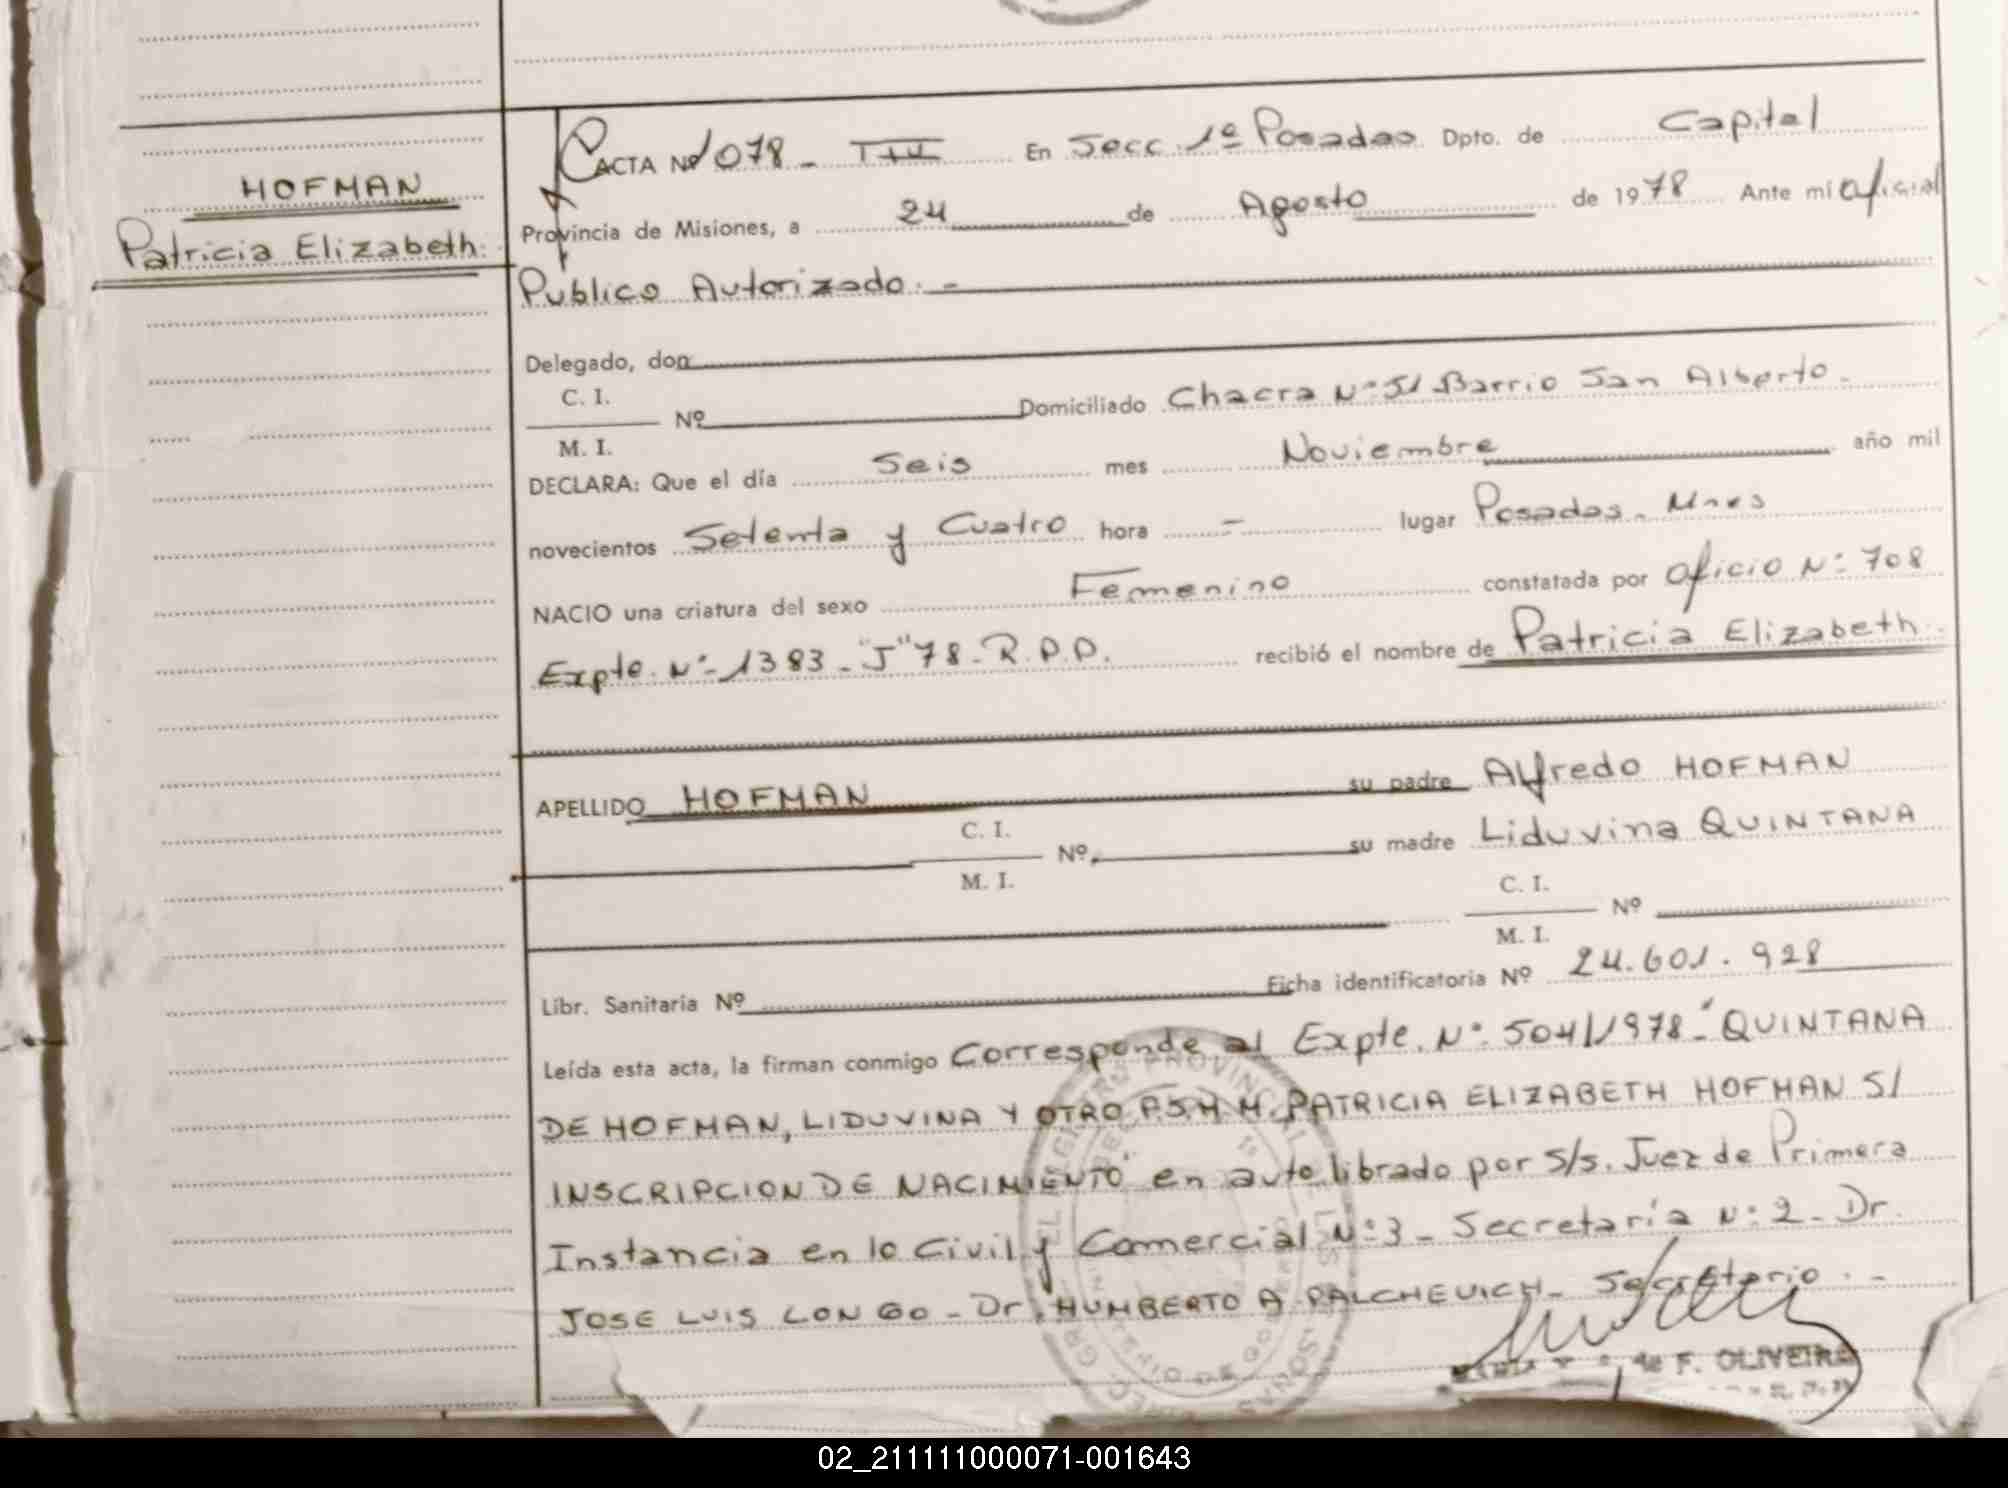 HOFMAN
Patricia Elizabeth.
ACTA Nº 1078 - T III En Secc. 1º Posadas Dpto. de Capital
Provincia de Misiones, a 24 de Agosto de 1978 Ante mi Oficial
Publico Autorizado. -
Delegado, don
C. I.
M. I.
Nº Domiciliado Chacra Nº 51 Barrio San Alberto -
DECLARA: Que el día Seis mes Noviembre año mil
novecientos Setenta y Cuatro hora - lugar Posadas. Mnes
NACIO una criatura del sexo Femenino constatada por oficio Nº 708
Expte. Nº 1383 - "J" 78 - R.P.P. recibió el nombre de Patricia Elizabeth.
APELLIDO HOFMAN su padre Alfredo HOFMAN
C. I.
M. I.
Nº su madre Liduvina QUINTANA
C. I.
M. I.
Nº
Libr. Sanitaria Nº Ficha identificatoria Nº 24.601.928
Leída esta acta, la firman conmigo Corresponde al Expte. Nº 504/1978 - "QUINTANA
DE HOFMAN, LIDUVINA Y OTRO P.S.H.M. PATRICIA ELIZABETH HOFMAN S/
INSCRIPCION DE NACIMIENTO" en auto librado por S/s. Juez de Primera
Instancia en lo Civil y Comercial Nº 3 - Secretaría Nº 2 - Dr.
JOSE LUIS LONGO - Dr. HUMBERTO A. PALCHEVICH - Secretario. -
de F. OLIVEIRA
02_211111000071-001643